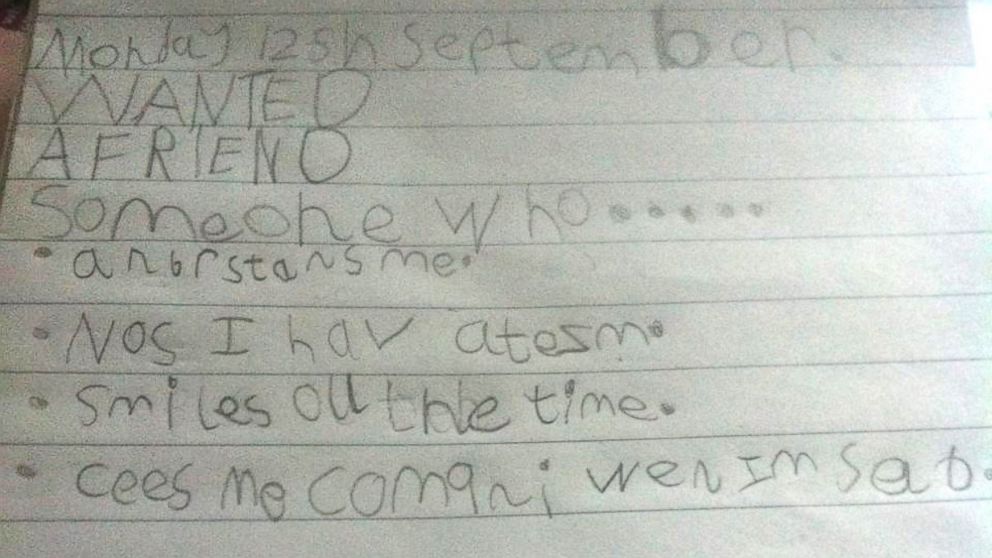 Monday 12sh September.
WANTED
A FRIEND
Someone who.....
• anbrstans me.
• Nos I hav atesm.
• Smiles all the time.
• cees me comqni wen im sab.